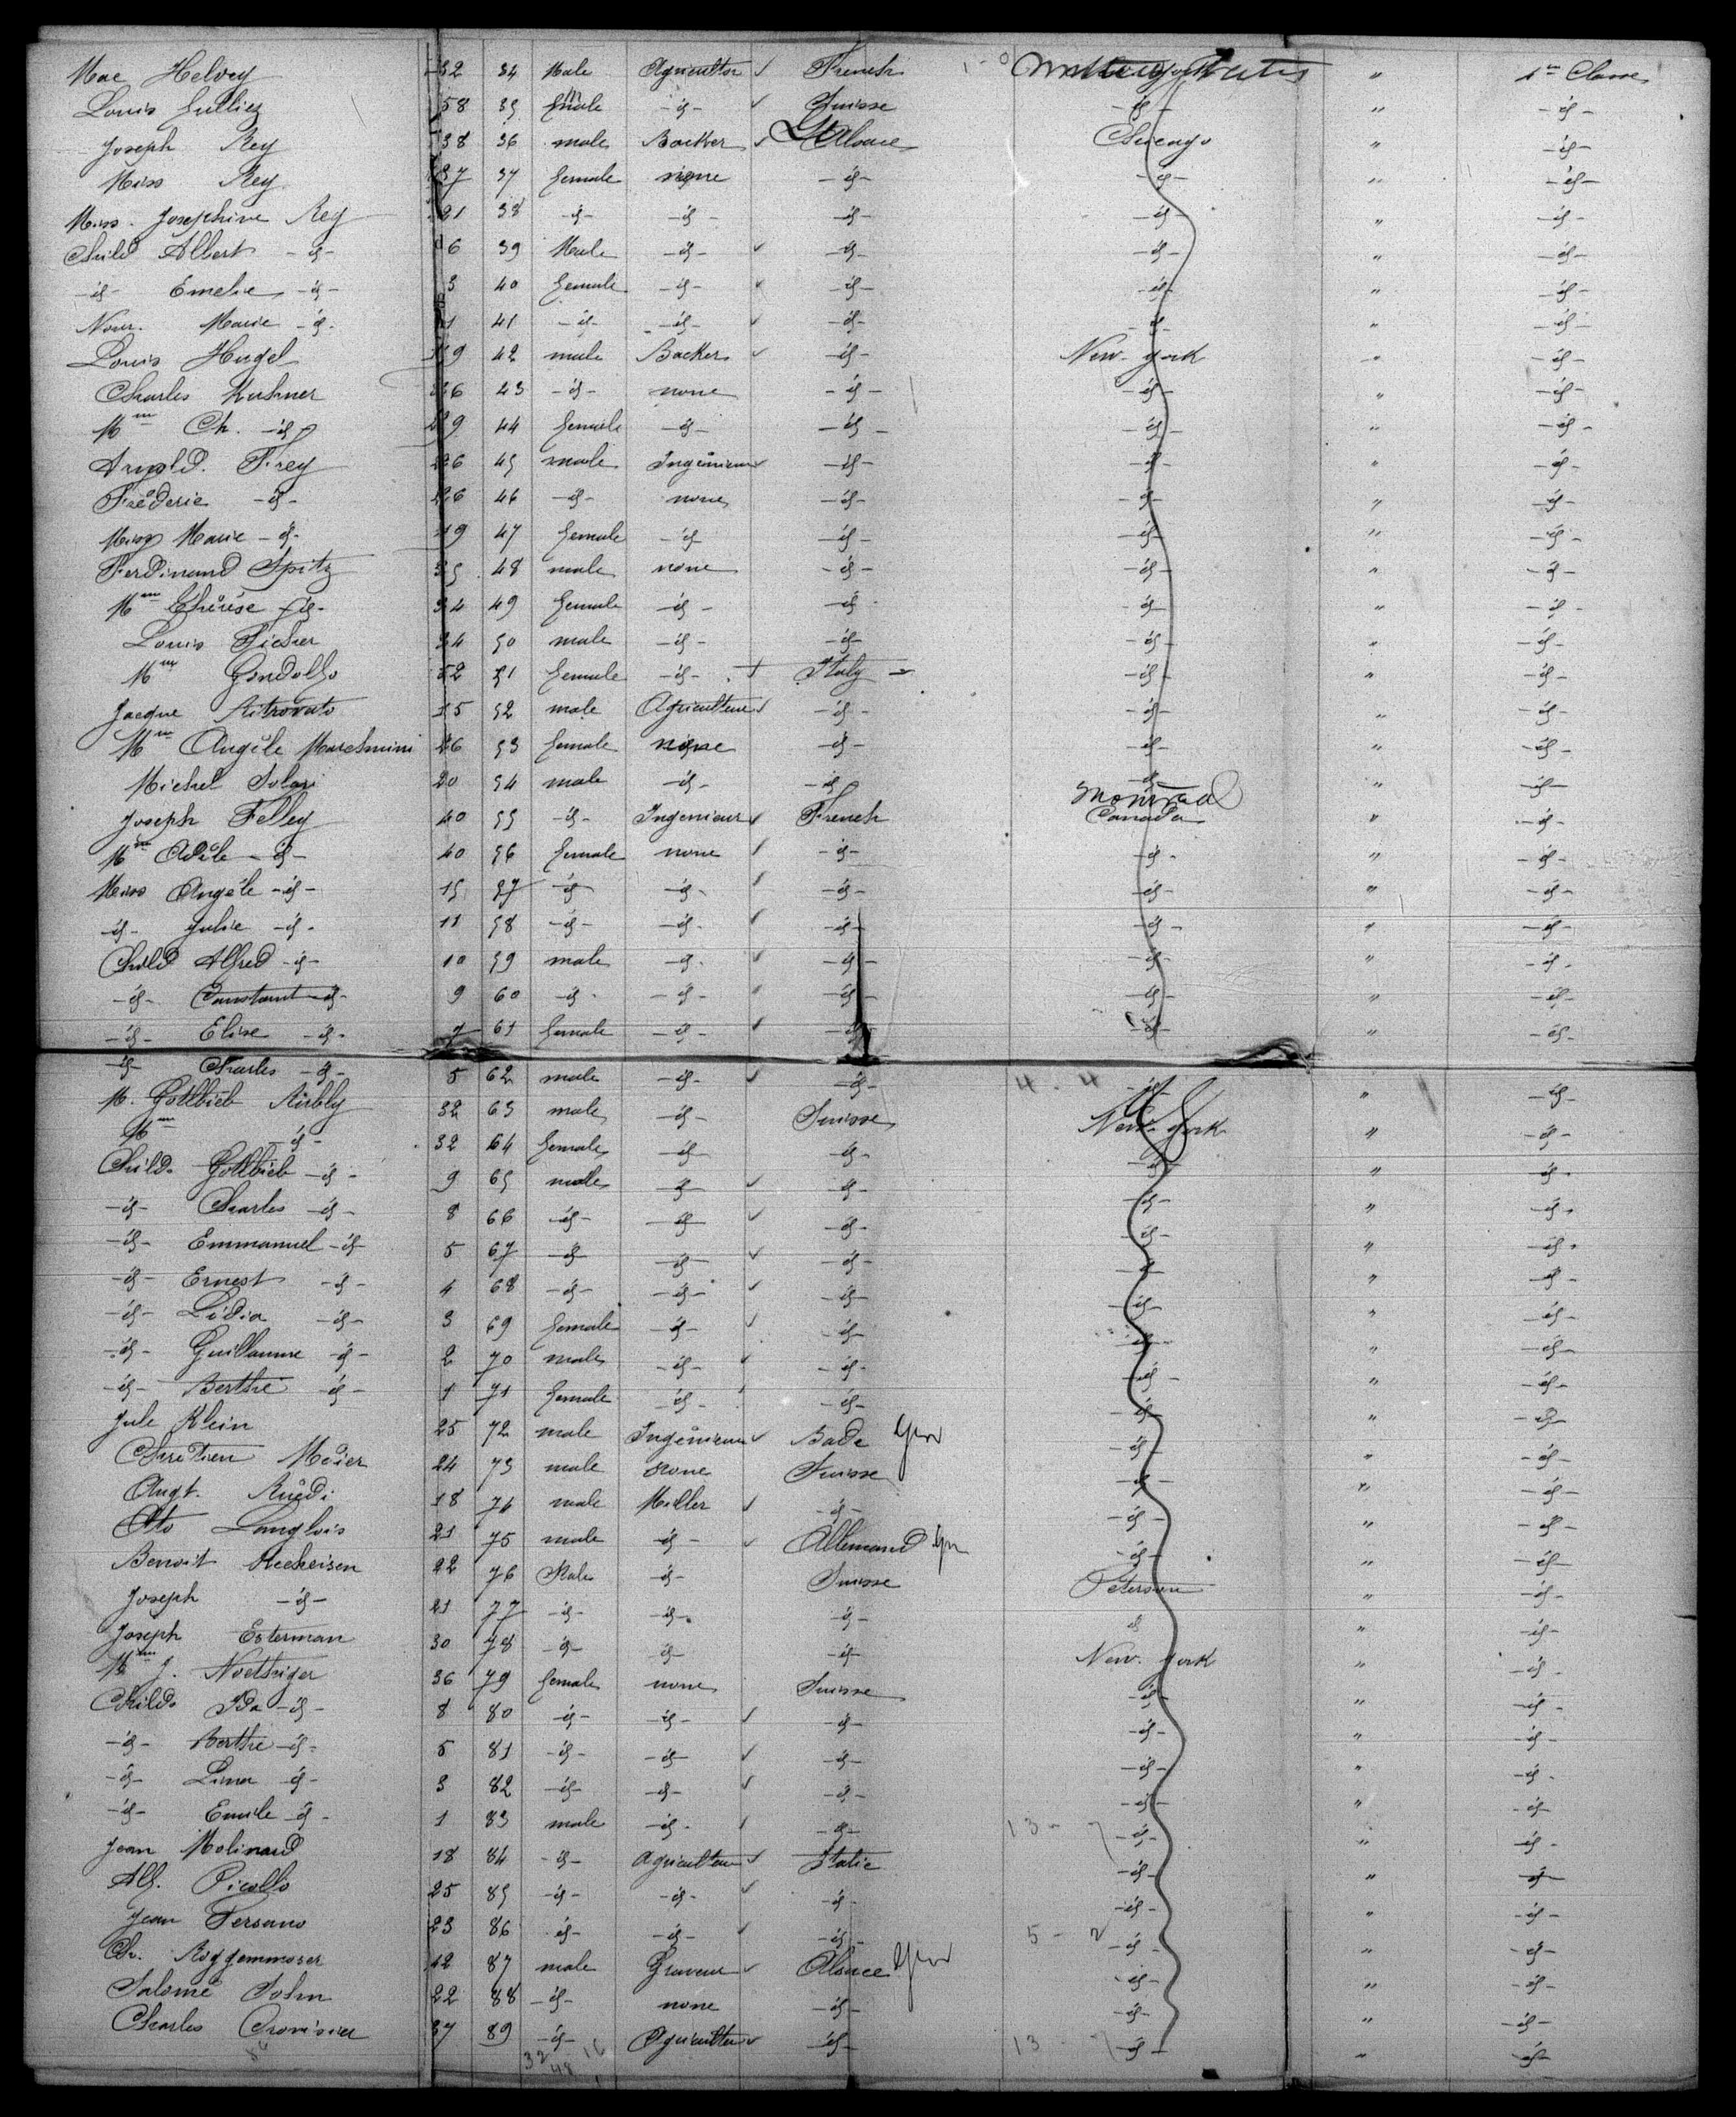 Mac Helvey 32 34 Male Agricultor French " 1re Classe
Louis 58 35 male -id- Suisse -id- " -id-
Joseph Rey 38 36 male Backer Alsace Chicago " -id-
Miss Rey 37 37 female none -id- -id- " -id-
Miss. Josephine Rey 21 38 -id- -id- -id- -id- " -id-
Child Albert -id- 6 39 Male -id- -id- -id- " -id-
-id- Emelie -id- 3 40 female -id- -id- -id- " -id-
Nour. Marie -id- 1 41 -id- -id- -id- -id- " -id-
Louis Hugel 19 42 male Backer -id- New-york " -id-
Charles Kushner 26 43 -id- none -id- -id- " -id-
Mme Ch. -id- 29 44 female -id- -id- -id- " -id-
Arnold. Frey 26 45 male Ingénieur -id- -id- " -id-
Fréderic -id- 26 46 -id- none -id- -id- " -id-
Miss Marie -id- 19 47 female -id- -id- -id- " -id-
Ferdinand Spitz 35 48 male none -id- -id- " -id-
Mme Thérèse -id- 34 49 female -id- -id- -id- " -id-
Louis Ficher 34 50 male -id- -id- -id- " -id-
Mme Gondolfo 52 51 female -id- Italy -id- " -id-
Jacque Ritrovato 15 52 male Agriculteur -id- -id- " -id-
Mme Angèle Marchinini 26 53 female none -id- -id- " -id-
Michel Solari 20 54 male -id- -id- -id- " -id-
Joseph Felley 40 55 -id- Ingenieur French Montreal Canada " -id-
Mme Adèle -id- 40 56 female none -id- -id- " -id-
Miss Angèle -id- 15 57 -id- -id- -id- -id- " -id-
-id- Julie -id- 11 58 -id- -id- -id- -id- " -id-
Child Alfred -id- 10 59 male -id- -id- -id- " -id-
-id- Constant -id- 9 60 -id- -id- -id- -id- " -id-
-id- Elise -id- 7 61 female -id- -id- -id- " -id-
-id- Charles -id- 5 62 male -id- -id- 4-4 -id- " -id-
M. Gottlieb Airbly 32 63 male -id- Suisse New-york " -id-
Mme -id- 32 64 female -id- -id- -id- " -id-
Child. Gottlieb -id- 9 65 male -id- -id- -id- " -id-
-id- Charles -id- 8 66 -id- -id- -id- -id- " -id-
-id- Emmanuel -id- 5 67 -id- -id- -id- -id- " -id-
-id- Ernest -id- 4 68 -id- -id- -id- -id- " -id-
-id- Lidia -id- 3 69 female -id- -id- -id- " -id-
-id- Guillaume -id- 2 70 male -id- -id- -id- " -id-
-id- Berthe -id- 1 71 female -id- -id- -id- " -id-
Jule Klein 25 72 male Ingénieur Bade Ger -id- " -id-
Chretien Meier 24 73 male none Suisse -id- " -id-
Augt. Ruedi 18 74 male Miller -id- -id- " -id-
Oto Langlois 21 75 male -id- Allemand Ger -id- " -id-
Benoit Hecheisen 22 76 Male -id- Suisse Peterson " -id-
Joseph -id- 21 77 -id- -id- -id- id " -id-
Joseph Esterman 30 78 -id- -id- -id- New-york " -id-
Mme J. Noethiger 36 79 female none Suisse -id- " -id-
Childs Ida -id- 8 80 -id- -id- -id- -id- " -id-
-id- Berthe -id- 5 81 -id- -id- -id- -id- " -id-
-id- Lina -id- 3 82 -id- -id- -id- -id- " -id-
-id- Emile -id- 1 83 male -id- -id- 13-7 -id- " -id-
Jean Molinard 18 84 -id- Agriculteur Italie -id- " -id-
Alf. Picollo 25 85 -id- -id- -id- -id- " -id-
Jean Fersano 23 86 -id- -id- -id- 5-2 -id- " -id-
Ch. Roggenmoser 42 87 male Graveur Alsace Ger -id- " -id-
Salomé John 22 88 -id- none -id- -id- " -id-
Charles Cronisier 37 89 -id- Agriculteur -id- 13-7 -id- " -id-
32 48 16